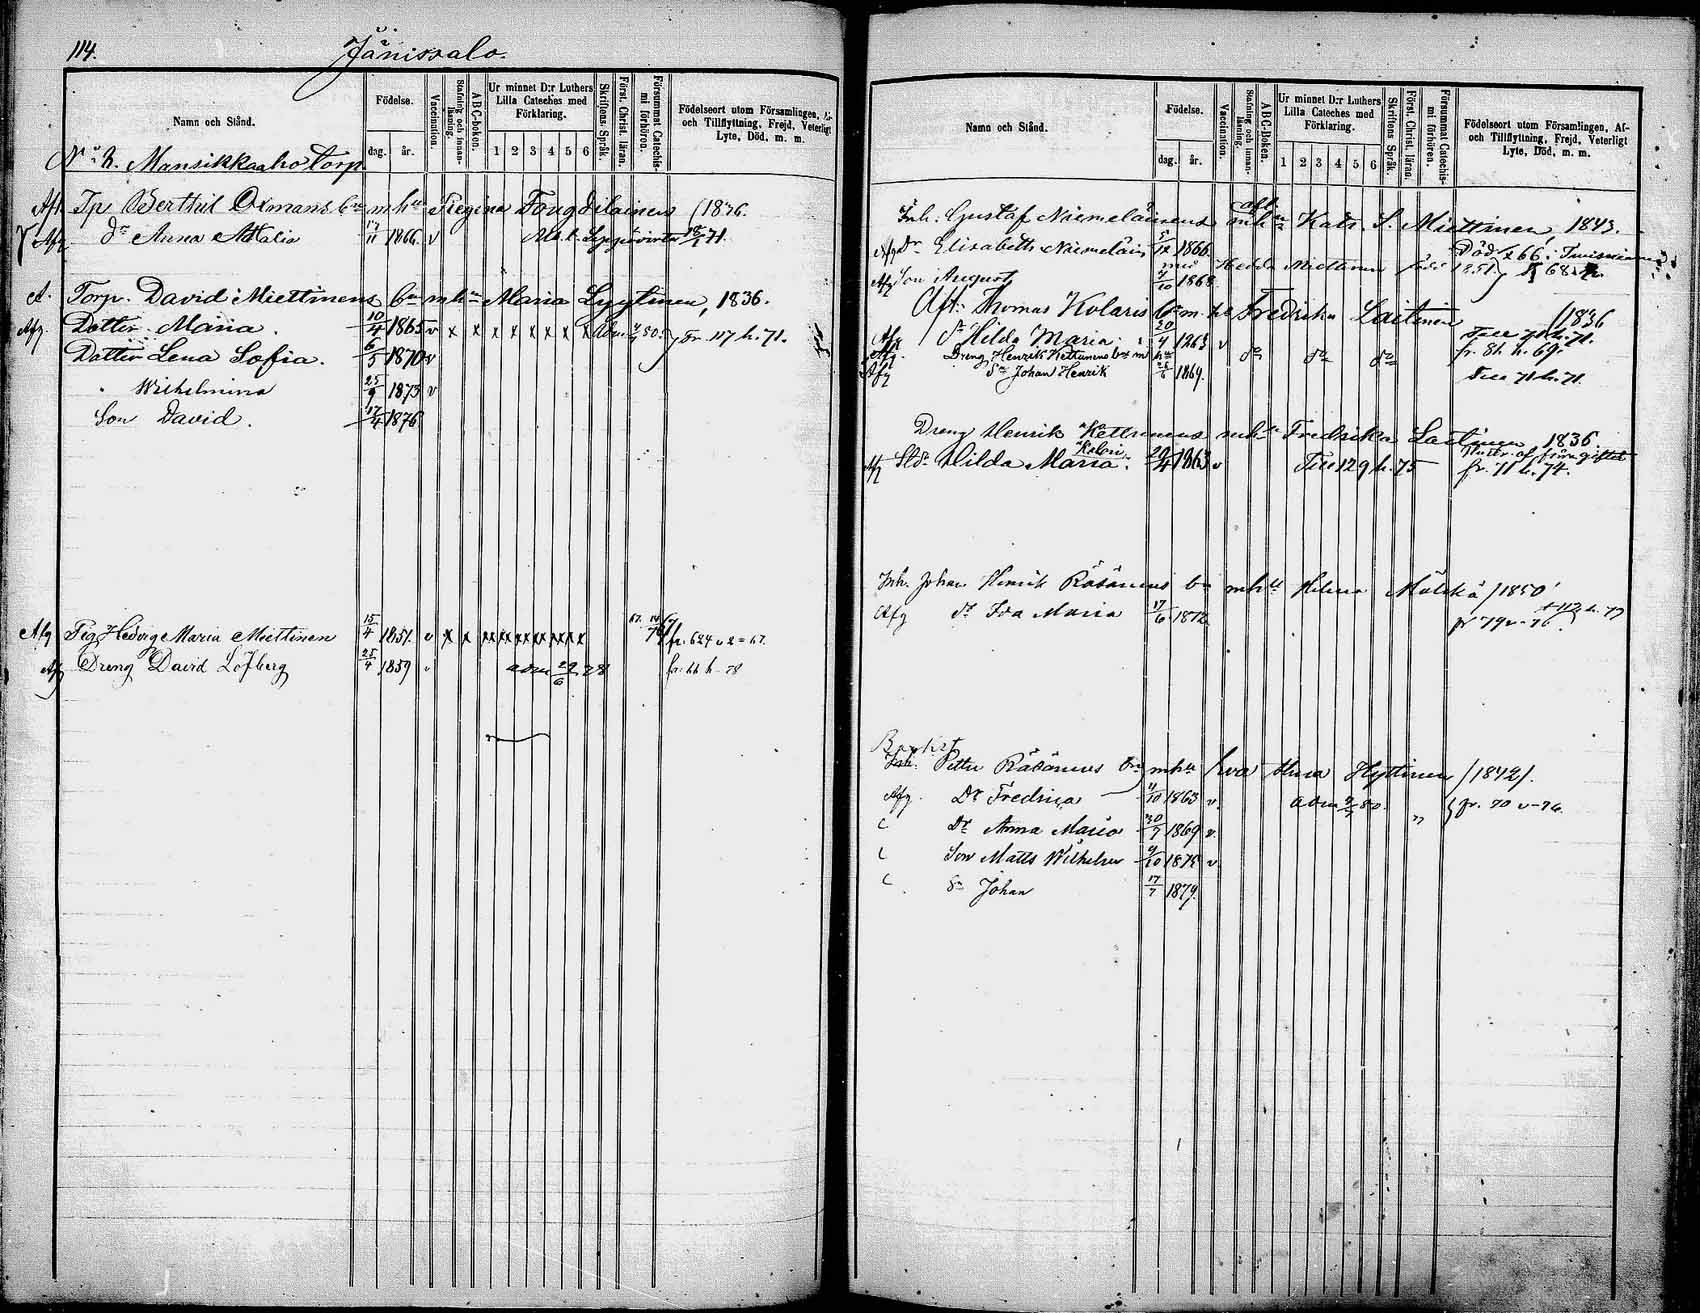 114.
Jänissalo.
Namn och Stånd.
Födelse.
dag. år.
Vaccination.
Stafning och innan-läsning.
ABC-boken.
Ur minnet D:r Luthers
Lilla Cateches med
Förklaring.
1 2 3 4 5 6
Skriftens Språk.
Först. Christ. läran.
Försummat Catechis-
mi förhören.
Födelseort utom Församlingen, Af-
och Tillflyttning, Frejd, Veterligt
Lyte, Död, m. m.
Mansikkaaho torp
Tp Berthil Oxmans bn m hu Regina Fougdilainen /1836.
Afg dr Anna Natalia 1866 v Leppävirta 71.
A. Torp. David Miettinens bn m hu Maria Lyytinen, 1836.
Afg Dotter Maria. 10/4 1865 v x x x x x x x x Adm 80. Fr. 117 h. 71.
Dotter Lena Sofia. 6/5 1870 v
Wilhelmina 25/9 1873 v
Son David. 17/4 1876
Afg Pig Hedvig Maria Miettinen 15/4 1851. v x x xx xx xx xx xx xx fr. 624 v 2 = 67.
Afg Dreng David Löfberg 25/4 1859 adm 22/6 78 fr. 66 h - 78
Namn och Stånd.
Födelse.
dag. år.
Vaccination.
Stafning och innan-läsning.
ABC-boken.
Ur minnet D:r Luthers
Lilla Cateches med
Förklaring.
1 2 3 4 5 6
Skriftens Språk.
Först. Christ. läran.
Försummat Catechis-
mi förhören.
Födelseort utom Församlingen, Af-
och Tillflyttning, Frejd, Veterligt
Lyte, Död, m. m.
Inh. Gustaf Niemeläinens afl. m hu Katr. S. Miettinen, 1843.
Afg Dr Elisabeth Niemeläin 5/12 1866. Död 66
Hedda Miettinen född 1851
Afg Son August 4/10 1868
Aft. Thomas Kolaris bn m hu Fredrika Laitinen /1836
Afg dr Hilda Maria. 20/4 1863 v Till 71 h. 71.
Afg. Dreng Henrik Kettunens bn m hu do do do fr. 81 h. 69.
Afg Sn Johan Henrik 1869. Till 71 h. 71.
Dreng Henrik Kettunens m hu Fredrika Laitinen, 1836.
Kolari
Afg Std. Hilda Maria. 20/4 1863 v Till 129 h. 75 fr. 71 h. 74.
Inh. Johan Henrik Räsänens bn m hu Helena Mälskä /1850
Afg dr Ida Maria 17/6 1872 fr 79 v - 76
Baptist
Inh. Petter Räsänens bn m hu Eva Anna Hyttinen /1842/.
Afg. Dr Fredrica 4/10 1863 v. adm 80. fr. 70 v - 76
Dr Anna Maria 30/7 1869 v.
Son Matts Wilhelm 9/10 1875 v.
Sn Johan 17/7 1879.